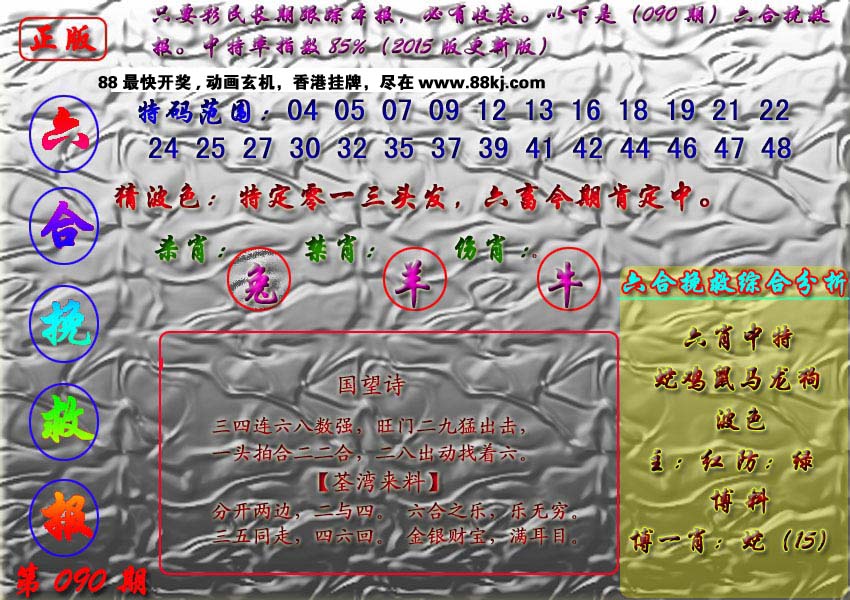 正版
只要彩民长期跟踪本报，必有收获。以下是（090期）六合挽救
报。中特率指数85%（2015版更新版）
88最快开奖,动画玄机，香港挂牌，尽在www.88kj.com
特码范围：04 05 07 09 12 13 16 18 19 21 22
24 25 27 30 32 35 37 39 41 42 44 46 47 48
猜波色：特定零一三头发，六畜今期肯定中。
杀肖：兔 禁肖：羊 伤肖：牛
六
合
挽
救
报
第090期
国望诗
三四连六八数强，旺门二九猛出击，
一头拍合二二合，二八出动找着六。
【荃湾来料】
分开两边，二与四。 六合之乐，乐无穷。
三五同走，四六回。 金银财宝，满耳目。
六合挽救综合分析
六肖中特
蛇鸡鼠马龙狗
波色
主：红防：绿
博料
博一肖：蛇（15）